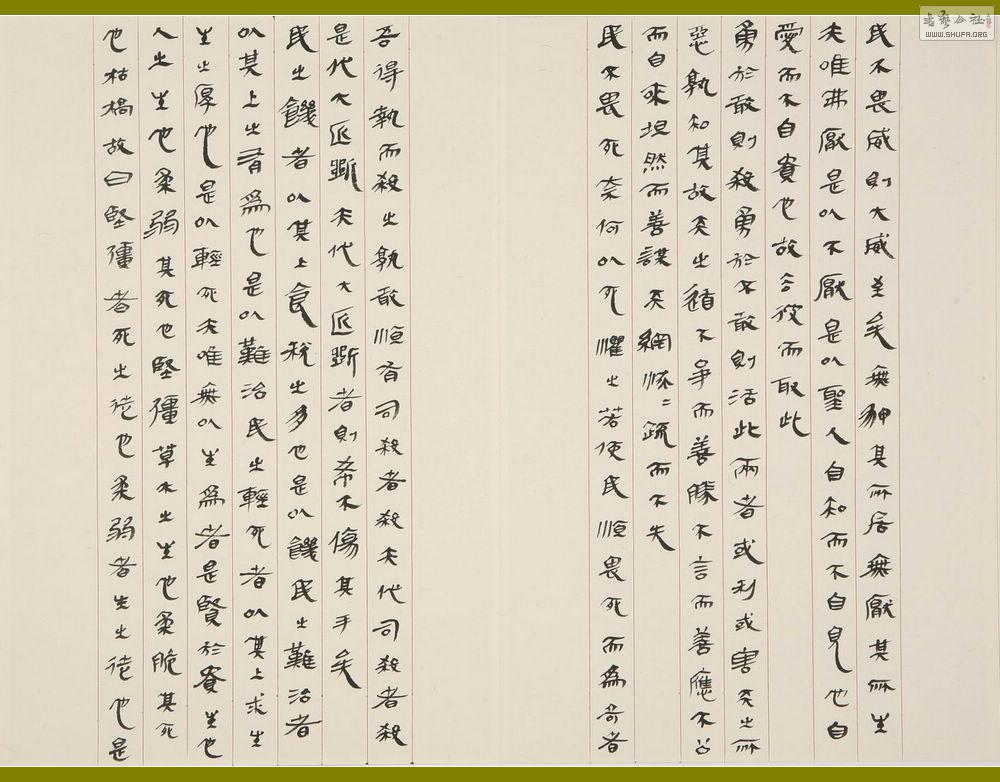 民不畏威則大威至矣無狎其所居無厭其所生
夫唯弗厭是以不厭是以聖人自知而不自見也自
愛而不自貴也故去彼而取此
勇於敢則殺勇於不敢則活此兩者或利或害天之所
惡孰知其故天之道不爭而善勝不言而善應不召
而自來坦然而善謀天網恢〻疏而不失
民不畏死奈何以死懼之若使民順畏死而為奇者
吾得執而殺之孰敢順有司殺者殺夫代司殺者殺
是代大匠斲夫代大匠斲者則希不傷其手矣
民之饑者以其上食稅之多也是以饑民之難治者
以其上之有為也是以難治民之輕死者以其上求生
生之厚也是以輕死夫唯無以生為者是賢於貴生也
人之生也柔弱其死也堅彊草木之生也柔脆其死
也枯槁故曰堅彊者死之徒也柔弱者生之徒也是
WWW.SHUFA.ORG